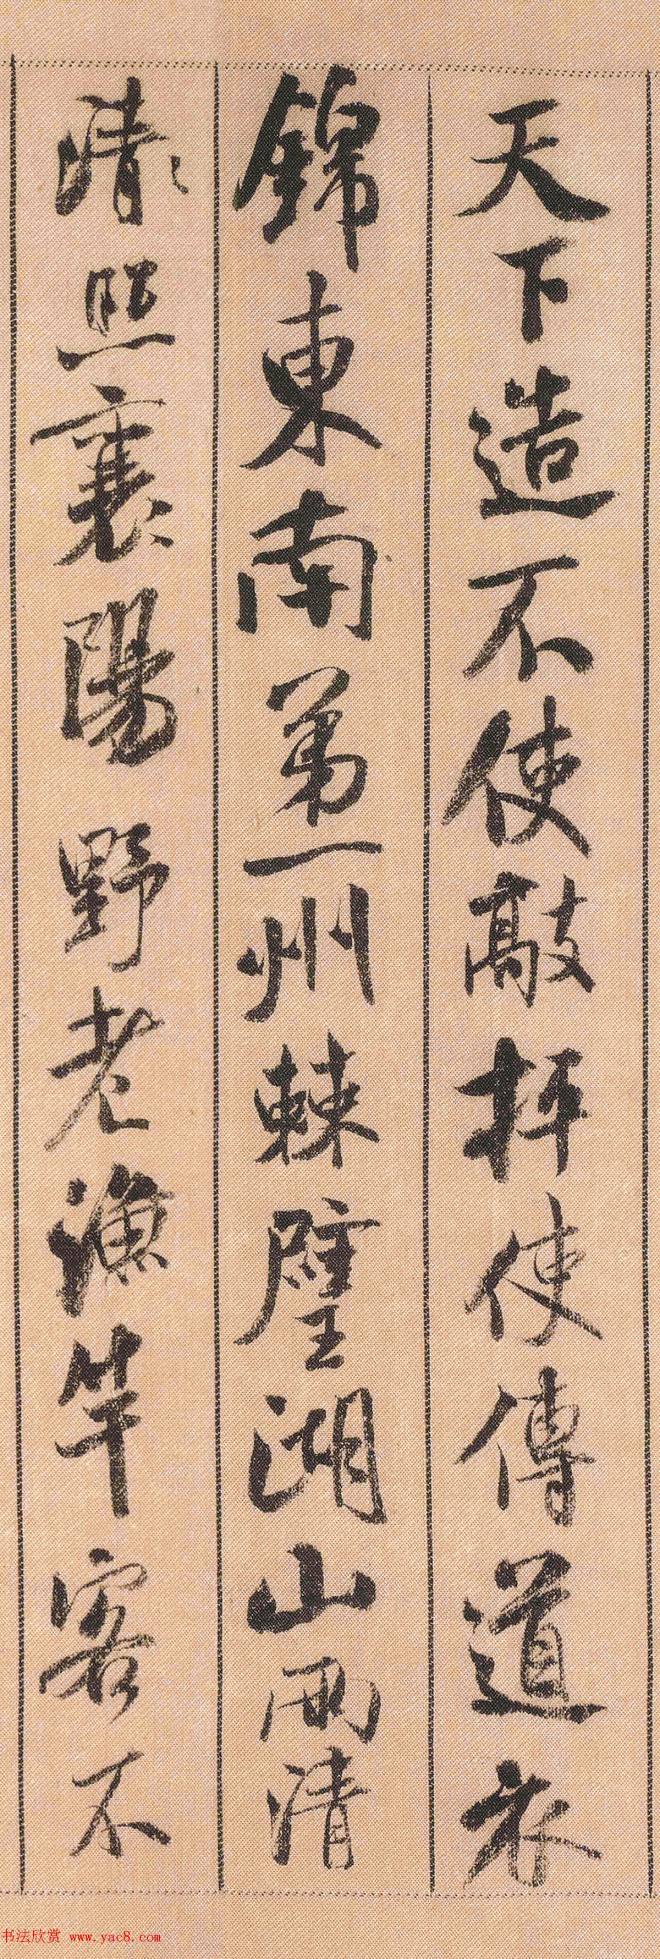 天下造不使敲抨使傳道衣
錦東南第一州棘璧湖山兩清
清〻照襄陽野老漁竿客不
书法欣赏 www.yac8.com